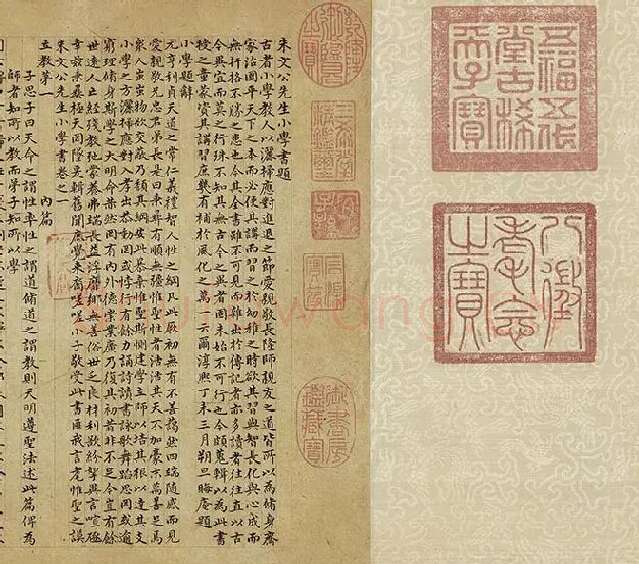 五福五代
堂古稀
天子寶
八徵
耄念
之寶
乾隆御覽之寶
三希堂精鑑璽
宜子孫
石渠寶笈
御書房鑑藏寶
朱文公先生小學書題
古者小學教人以灑掃應對進退之節愛親敬長隆師親友之道皆所以為脩身齊
家治國平天下之本而必使其講而習之於幼稚之時欲其習與智長化與心成而
無扞格不勝之患也今其全書雖不可見而雜出於傳記者亦多讀者往往直以古
今異宜而莫之行殊不知其無古今之異者固未始不可行也今頗蒐輯以為此書
授之童蒙資其講習庶幾有補於風化之萬一云爾淳熙丁未三月朔旦晦庵題
小學題辭
元亨利貞天道之常仁義禮智人性之綱凡此厥初無有不善藹然四端隨感而見
愛親敬兄忠君弟長是曰秉彝有順無彊惟聖性者浩浩其天不加毫末萬善足焉
衆人蚩蚩物欲交蔽乃頹其綱安此暴棄惟聖斯惻建學立師以培其根以達其支
小學之方灑掃應對入孝出恭動罔或悖行有餘力誦詩讀書詠歌舞蹈思罔或逾
窮理脩身斯學之大明命赫然罔有內外德崇業廣乃復其初昔非不足今豈有餘
世遠人亡經殘教弛蒙養弗端長益浮靡鄉無善俗世乏良材利欲紛挐異言喧豗
幸茲秉彝極天罔墜爰輯舊聞庶覺來裔嗟嗟小子敬受此書匪我言耄惟聖之謨
朱文公先生小學書卷之一
內篇
立教第一
子思子曰天命之謂性率性之謂道脩道之謂教則天明遵聖法述此篇俾為
師者知所以教而弟子知所以學